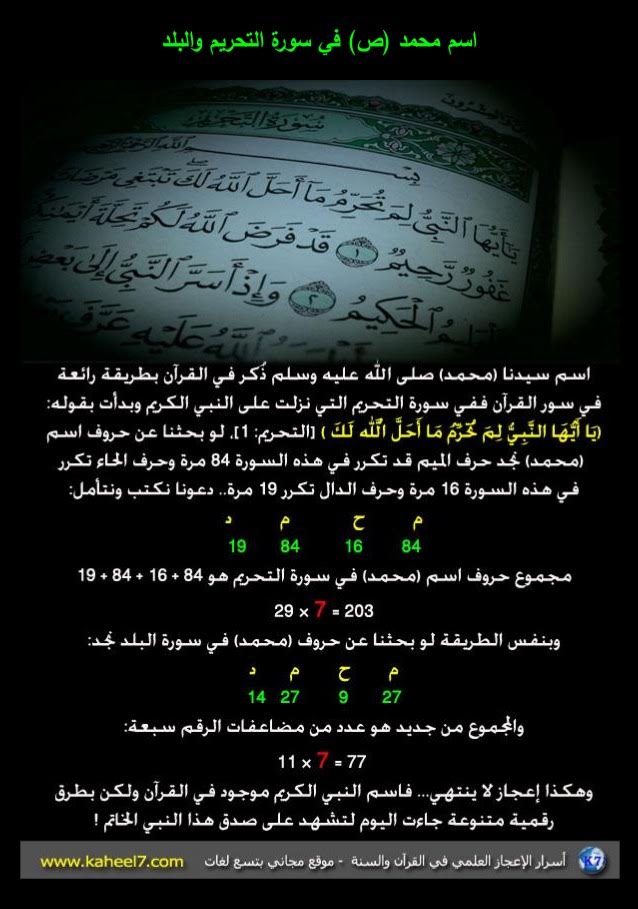 اسم محمد (ص) في سورة التحريم والبلد
سُورَةُ التَّحْرِيمِ
يَٰٓأَيُّهَا ٱلنَّبِيُّ لِمَ تُحَرِّمُ مَآ أَحَلَّ ٱللَّهُ لَكَ تَبْتَغِي مَرْضَاتَ
غَفُورٌ رَّحِيمٌ ١ قَدْ فَرَضَ ٱللَّهُ لَكُمْ تَحِلَّةَ أَيْمَٰنِكُمْ
ٱلْحَكِيمُ ٢ وَإِذْ أَسَرَّ ٱلنَّبِيُّ إِلَىٰ بَعْضِ
ٱللَّهُ عَلَيْهِ عَرَّفَ
اسم سيدنا (محمد) صلى الله عليه وسلم ذُكر في القرآن بطريقة رائعة
في سور القرآن ففي سورة التحريم التي نزلت على النبي الكريم وبدأت بقوله:
(يَا أَيُّهَا النَّبِيُّ لِمَ تُحَرِّمُ مَا أَحَلَّ اللَّهُ لَكَ) [التحريم: 1]. لو بحثنا عن حروف اسم
(محمد) نجد حرف الميم قد تكرر في هذه السورة 84 مرة وحرف الحاء تكرر
في هذه السورة 16 مرة وحرف الدال تكرر 19 مرة.. دعونا نكتب ونتأمل:
م ح م د
84 16 84 19
مجموع حروف اسم (محمد) في سورة التحريم هو 84 + 16 + 84 + 19
203 = 7 × 29
وبنفس الطريقة لو بحثنا عن حروف (محمد) في سورة البلد نجد:
م ح م د
27 9 27 14
والمجموع من جديد هو عدد من مضاعفات الرقم سبعة:
77 = 7 × 11
وهكذا إعجاز لا ينتهي... فاسم النبي الكريم موجود في القرآن ولكن بطرق
رقمية متنوعة جاءت اليوم لتشهد على صدق هذا النبي الخاتم !
K7 أسرار الإعجاز العلمي في القرآن والسنة - موقع مجاني بتسع لغات www.kaheel7.com